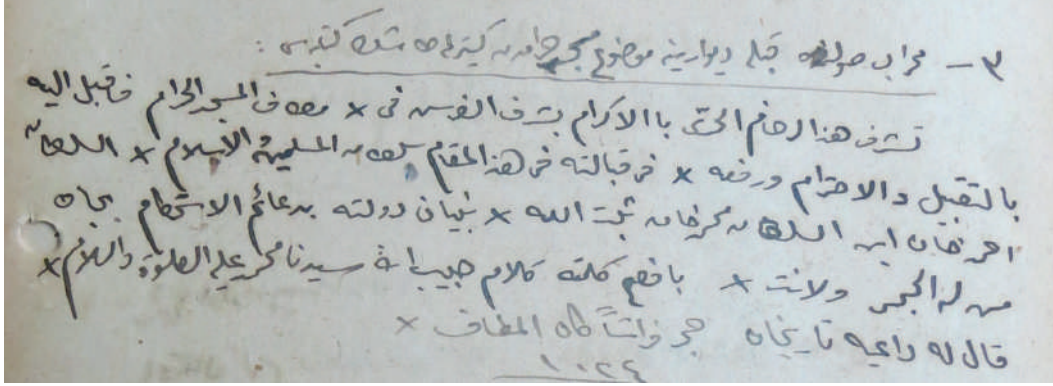 ٣ – محراب صولنده قبله ديوارينه موضوع حجر كتبه سى :
تشرف هذا الرخام الحرى بالاكرام بشرف الفرس فى × مطاف المسجد الحرام فاقبل اليه
بالتقبل والاحترام ورفعه × فى قبالته فى هذا المقام سلطان المسلمين الاسلام × السلطان
احمد خان ابن السلطان محمد خان ثبت الله × بنيان دولته بدعائم الاستحكام بجاه
من له الحجر ولانت × بافصح كلمه كلام حبيب الله سيدنا محمد عليه الصلوة والسلام ×
قال له داعيه تاريخاه حجر فرشا كان المطاف ×
١٠٢٤